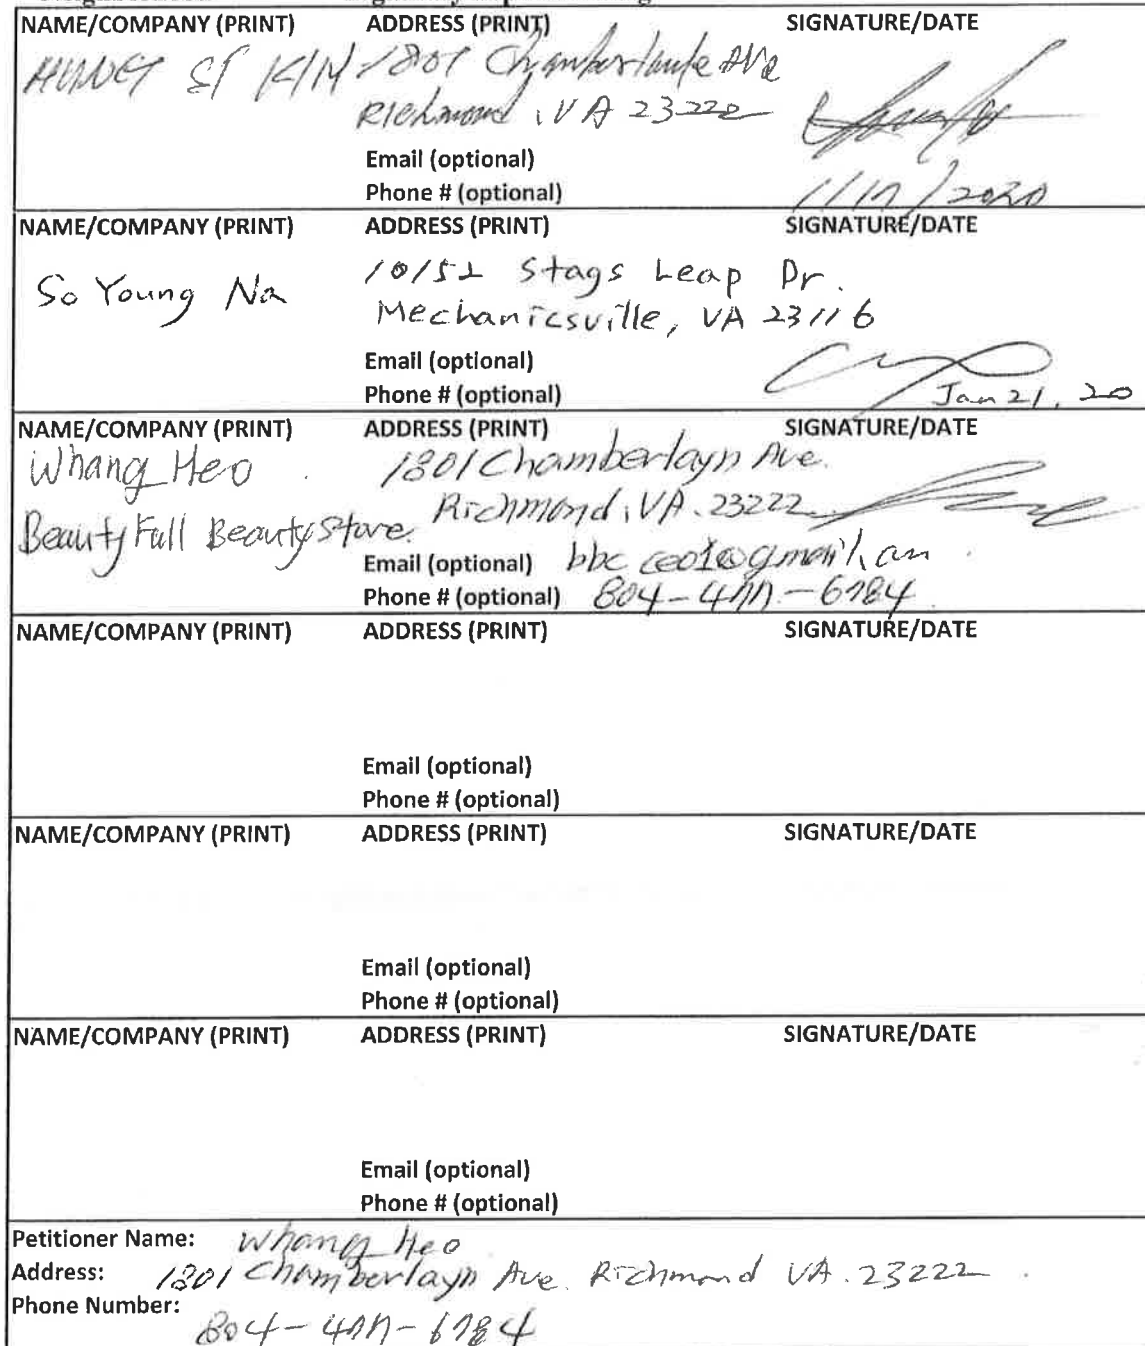 NAME/COMPANY (PRINT) ADDRESS (PRINT) SIGNATURE/DATE
KIM 1801 Ave
Richmond, VA 23222
Email (optional)
Phone # (optional) 1/17/2020
NAME/COMPANY (PRINT) ADDRESS (PRINT) SIGNATURE/DATE
So Young Na 10152 Stags Leap Dr.
Mechanicsville, VA 23116
Email (optional)
Phone # (optional) Jan 21, 20
NAME/COMPANY (PRINT) ADDRESS (PRINT) SIGNATURE/DATE
Whang Heo 1801 Chamberlayn Ave.
Richmond, VA. 23222
Beauty Full Beauty Store.
Email (optional)
Phone # (optional) 804-477-6784
NAME/COMPANY (PRINT) ADDRESS (PRINT) SIGNATURE/DATE
Email (optional)
Phone # (optional)
NAME/COMPANY (PRINT) ADDRESS (PRINT) SIGNATURE/DATE
Email (optional)
Phone # (optional)
NAME/COMPANY (PRINT) ADDRESS (PRINT) SIGNATURE/DATE
Email (optional)
Phone # (optional)
Petitioner Name: Whang Heo
Address: 1801 Chamberlayn Ave. Richmond VA. 23222
Phone Number:
804-477-6784